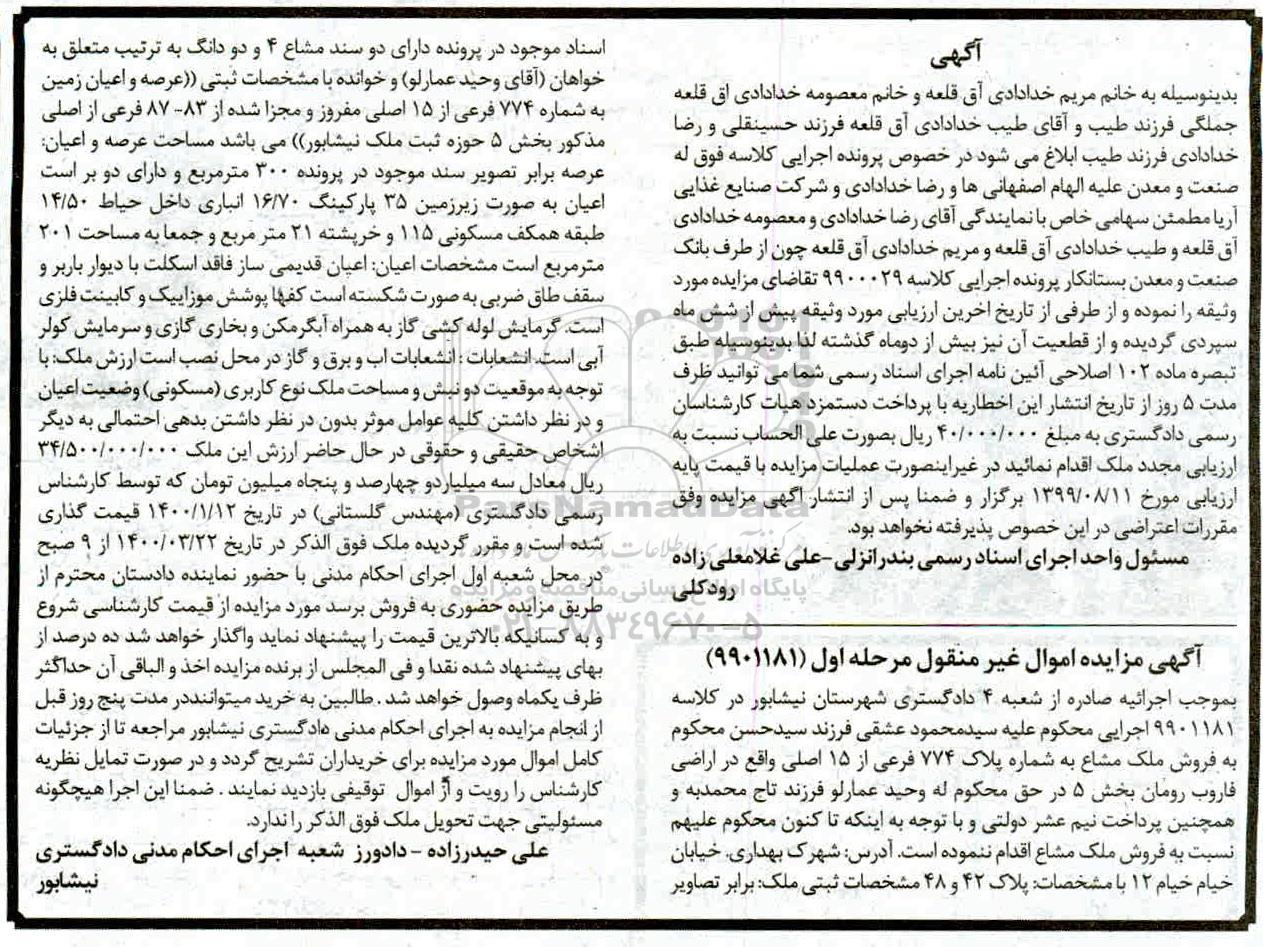 آگهی
بدینوسیله به خانم مریم خدادادی آق قلعه و خانم معصومه خدادادی اق قلعه
جملگی فرزند طیب و آقای طیب خدادادی آق قلعه فرزند حسینقلی و رضا
خدادادی فرزند طیب ابلاغ می شود در خصوص پرونده اجرایی کلاسه فوق له
صنعت و معدن علیه الهام اصفهانی ها و رضا خدادادی و شرکت صنایع غذایی
آریا مطمئن سهامی خاص با نمایندگی آقای رضا خدادادی و معصومه خدادادی
آق قلعه و طیب خدادادی آق قلعه و مریم خدادادی آق قلعه چون از طرف بانک
صنعت و معدن بستانکار پرونده اجرایی کلاسه ۹۹۰۰۰۲۹ تقاضای مزایده مورد
وثیقه را نموده و از طرفی از تاریخ اخرین ارزیابی مورد وثیقه پیش از شش ماه
سپردی گردیده و از قطعیت آن نیز بیش از دوماه گذشته لذا بدینوسیله طبق
تبصره ماده ۱۰۲ اصلاحی آئین نامه اجرای اسناد رسمی شما می توانید ظرف
مدت ۵ روز از تاریخ انتشار این اخطاریه با پرداخت دستمزد هیات کارشناسان
رسمی دادگستری به مبلغ ۴۰/۰۰۰/۰۰۰ ریال بصورت علی الحساب نسبت به
ارزیابی مجدد ملک اقدام نمائید در غیراینصورت عملیات مزایده با قیمت پایه
ارزیابی مورخ ۱۳۹۹/۰۸/۱۱ برگزار و ضمنا پس از انتشار آگهی مزایده وفق
مقررات اعتراضی در این خصوص پذیرفته نخواهد بود.
مسئول واحد اجرای اسناد رسمی بندرانزلی -علی غلامعلی زاده
رودکلی
آگهی مزایده اموال غیر منقول مرحله اول (۹۹۰۱۱۸۱)
بموجب اجرائیه صادره از شعبه ۴ دادگستری شهرستان نیشابور در کلاسه
۹۹۰۱۱۸۱ اجرایی محکوم علیه سیدمحمود عشقی فرزند سیدحسن محکوم
به فروش ملک مشاع به شماره پلاک ۷۷۴ فرعی از ۱۵ اصلی واقع در اراضی
فاروب رومان بخش ۵ در حق محکوم له وحید عمارلو فرزند تاج محمدبه و
همچنین پرداخت نیم عشر دولتی و با توجه به اینکه تا کنون محکوم علیهم
نسبت به فروش ملک مشاع اقدام ننموده است. آدرس: شهرک بهداری، خیابان
خیام خیام ۱۲ با مشخصات: پلاک ۴۲ و ۴۸ مشخصات ثبتی ملک: برابر تصاویر
اسناد موجود در پرونده دارای دو سند مشاع ۴ و دو دانگ به ترتیب متعلق به
خواهان (آقای وحید عمارلو) و خوانده با مشخصات ثبتی ((عرصه و اعیان زمین
به شماره ۷۷۴ فرعی از ۱۵ اصلی مفروز و مجزا شده از ۸۳- ۸۷ فرعی از اصلی
مذکور بخش ۵ حوزه ثبت ملک نیشابور)) می باشد مساحت عرصه و اعیان:
عرصه برابر تصویر سند موجود در پرونده ۳۰۰ مترمربع و دارای دو بر است
اعیان به صورت زیرزمین ۳۵ پارکینگ ۱۶/۷۰ انباری داخل حیاط ۱۴/۵۰
طبقه همکف مسکونی ۱۱۵ و خرپشته ۲۱ متر مربع و جمعا به مساحت ۲۰۱
مترمربع است مشخصات اعیان: اعیان قدیمی ساز فاقد اسکلت با دیوار باربر و
سقف طاق ضربی به صورت شکسته است کفها پوشش موزاییک و کابینت فلزی
است. گرمایش لوله کشی گاز به همراه آبگرمکن و بخاری گازی و سرمایش کولر
آبی است. انشعابات : انشعابات اب و برق و گاز در محل نصب است ارزش ملک: با
توجه به موقعیت دو نبش و مساحت ملک نوع کاربری (مسکونی) وضعیت اعیان
و در نظر داشتن کلیه عوامل موثر بدون در نظر داشتن بدهی احتمالی به دیگر
اشخاص حقیقی و حقوقی در حال حاضر ارزش این ملک ۳۴/۵۰۰/۰۰۰/۰۰۰
ریال معادل سه میلیاردو چهارصد و پنجاه میلیون تومان که توسط کارشناس
رسمی دادگستری (مهندس گلستانی) در تاریخ ۱۴۰۰/۱/۱۲ قیمت گذاری
شده است و مقرر گردیده ملک فوق الذکر در تاریخ ۱۴۰۰/۰۳/۲۲ از ۹ صبح
در محل شعبه اول اجرای احکام مدنی با حضور نماینده دادستان محترم از
طریق مزایده حضوری به فروش برسد مورد مزایده از قیمت کارشناسی شروع
و به کسانیکه بالاترین قیمت را پیشنهاد نماید واگذار خواهد شد ده درصد از
بهای پیشنهاد شده نقدا و فی المجلس از برنده مزایده اخذ و الباقی آن حداکثر
ظرف یکماه وصول خواهد شد . طالبین به خرید میتواننددر مدت پنج روز قبل
از انجام مزایده به اجرای احکام مدنی دادگستری نیشابور مراجعه تا از جزئیات
کامل اموال مورد مزایده برای خریداران تشریح گردد و در صورت تمایل نظریه
کارشناس را رویت و از اموال توقیفی بازدید نمایند . ضمنا این اجرا هیچگونه
مسئولیتی جهت تحویل ملک فوق الذکر را ندارد.
علی حیدرزاده - دادورز شعبه اجرای احکام مدنی دادگستری
نیشابور
ParsNamadData
پایگاه اطلاع رسانی مناقصه و مزایده
۰۲۱-۸۸۳۴۹۶۷۰-۵